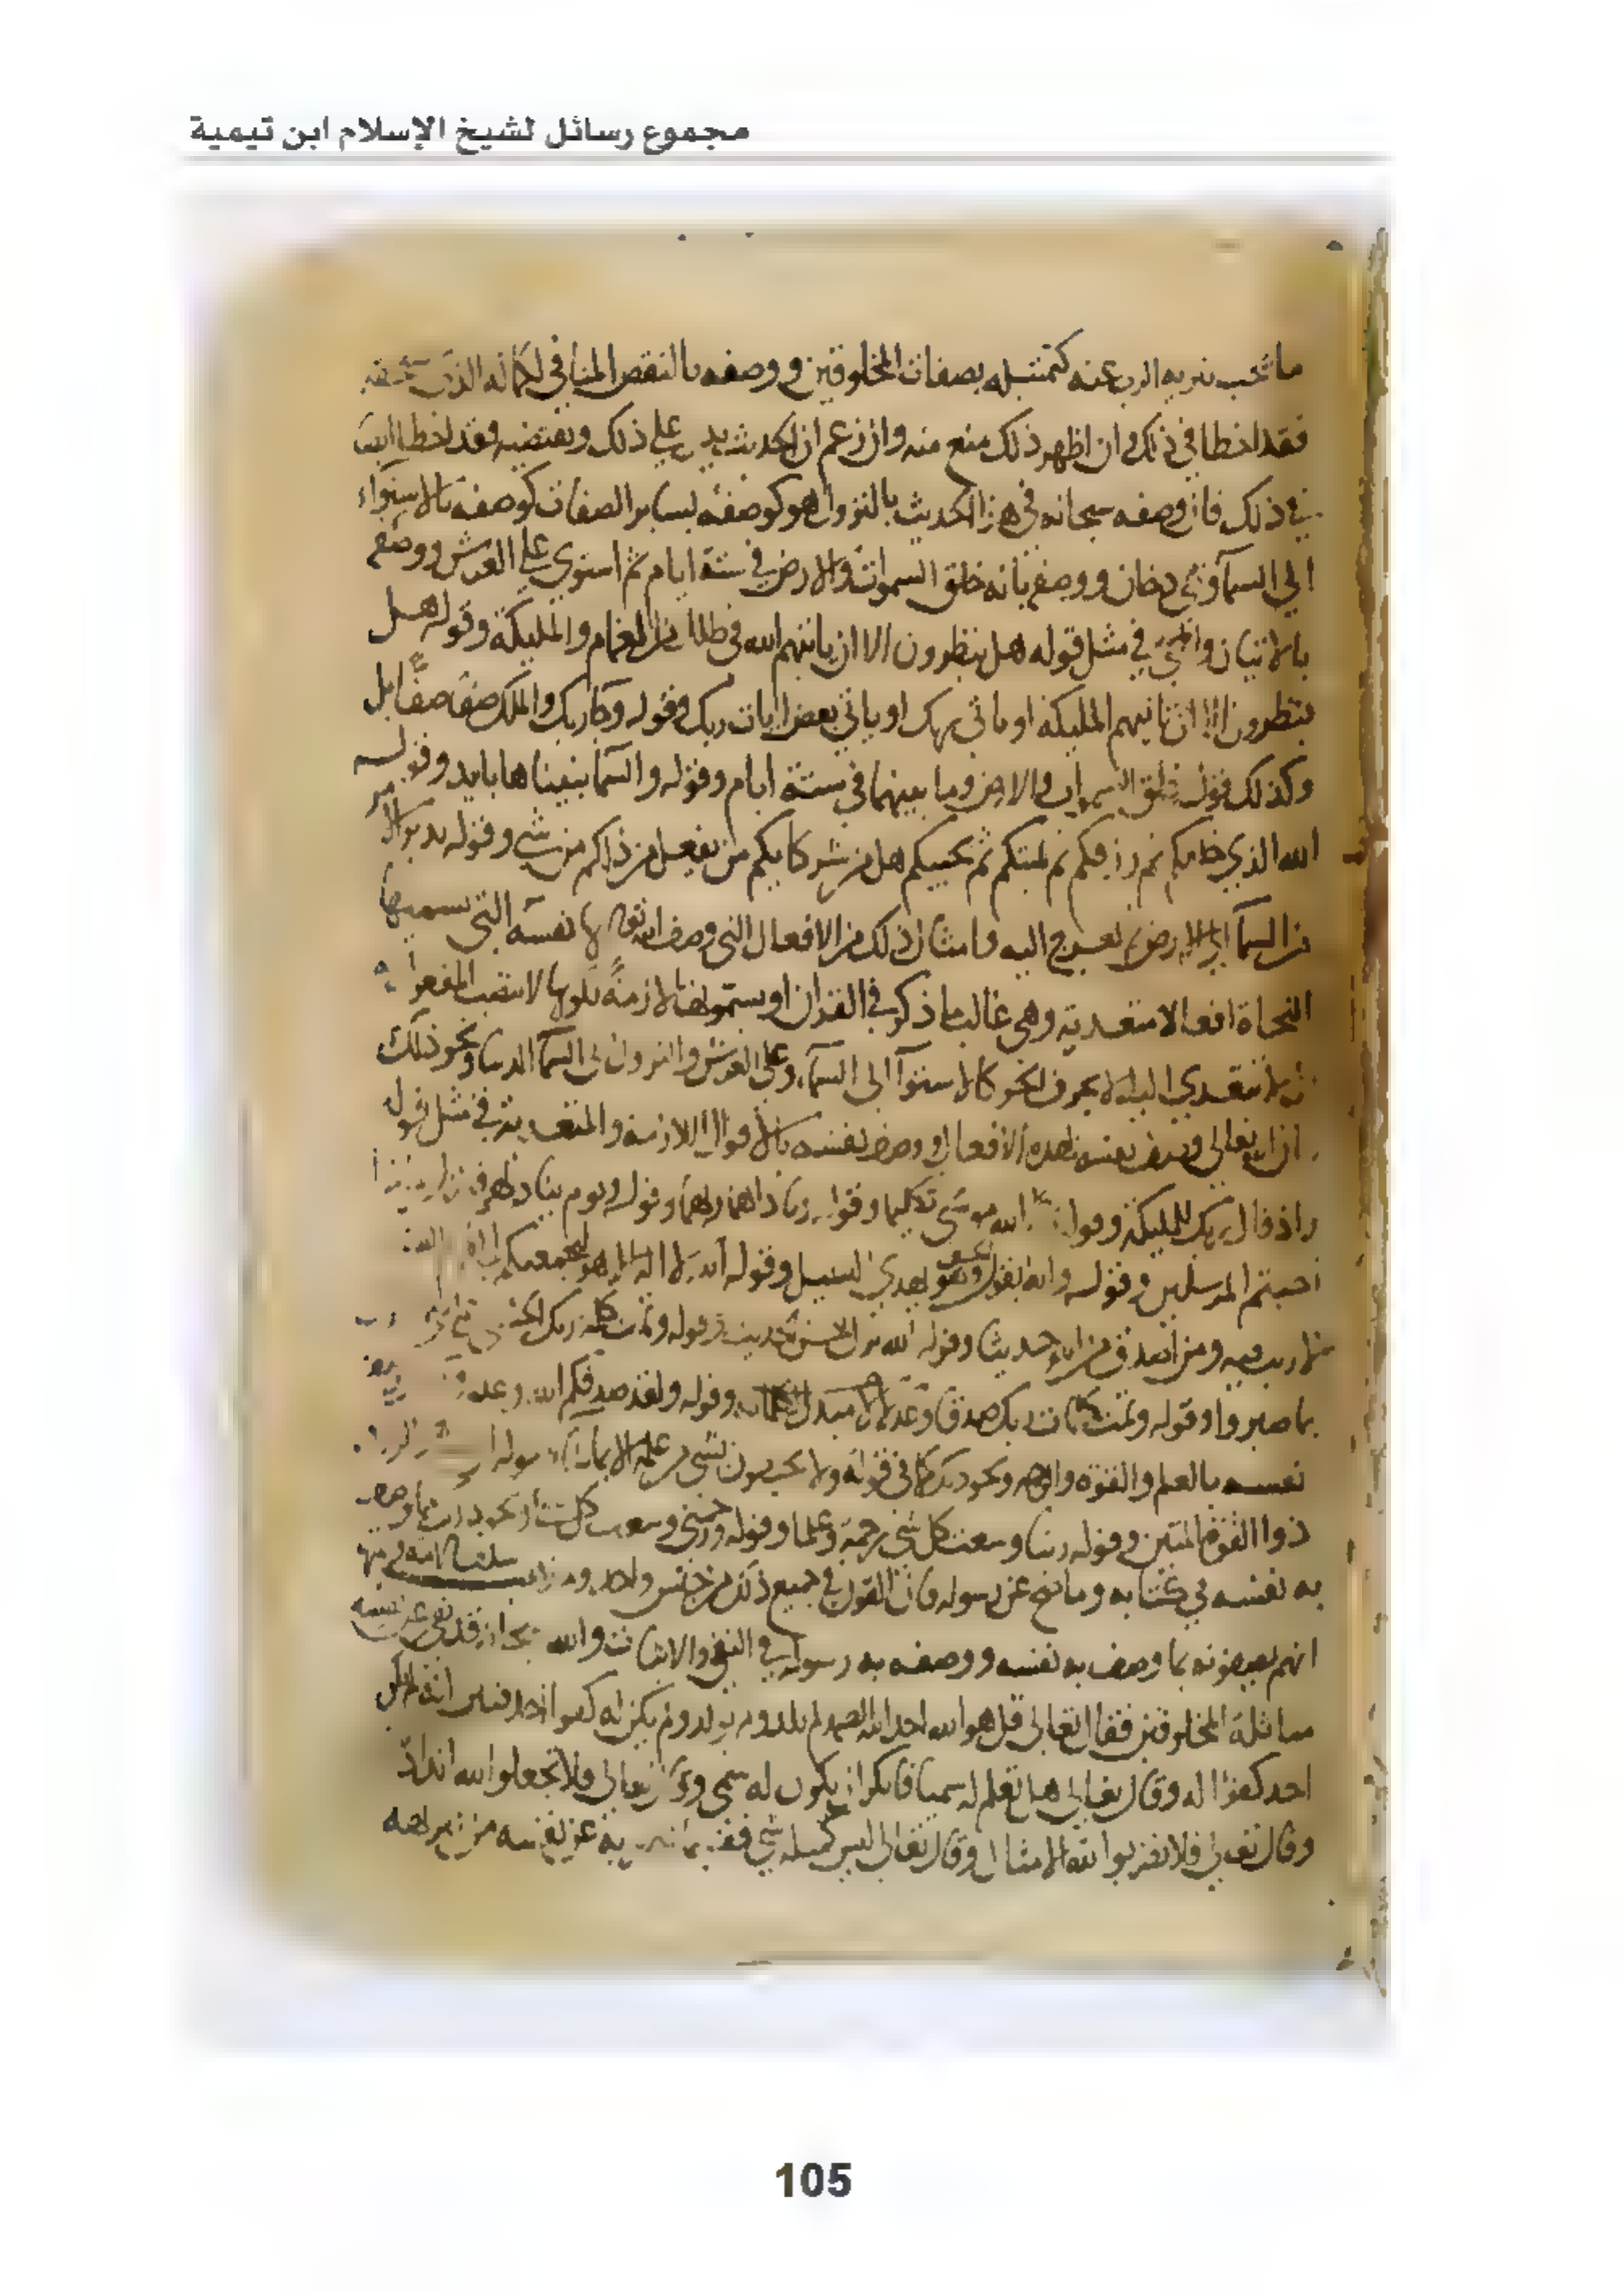 مجموع رسائل لشيخ الإسلام ابن تيمية
ما يجب تنزيه الرب عنه كتمثيله بصفات المخلوقين ووصفه بالنقص المنافي لكماله الذي
فقد اخطا في ذلك وان اظهر ذلك منع منه وان زعم ان الحديث يدل علي ذلك ويقتضيه فقد اخطا ايضا
في ذلك فان وصفه سبحانه في هذا الحديث بالنزول هو كوصفه بساير الصفات كوصفه بالاستواء
الي السمآ وهي دخان ووصفه بانه خلق السموات والارض في ستة ايام ثم استوي علي العرش ووصفه
بالاتيان والمجي في مثل قوله هل ينظرون الا ان ياتيهم الله في ظلل من الغمام والمليكة وقوله هل
ينظرون الا ان تاتيهم المليكة او ياتي ربك او ياتي بعض ايات ربك وقوله وجا ربك والملك صفا صفًّا بل
وكذلك قوله خلق السموات والارض وما بينهما في ستة ايام وقوله والسمآ بنيناها بايد وقوله
الله الذي خلقكم ثم رزقكم ثم يميتكم ثم يحييكم هل من شركايكم من يفعل من ذلكم من شي وقوله يدبر الامر
من السمآ الي الارض ثم يعرج اليه وامثال ذلك من الافعال التي وصف الله تعالى بها نفسه التي تسميها
النحاة افعالا متعدية وهي غالب ما ذكر في القران او يسمونها لازمةً لكونها لا تنصب المفعول به
بل لا تتعدي اليه الا بحرف الجر كالاستوآ الى السمآء وعلى العرش والنزول الى السمآ الدنيا ونحو ذلك
فان الله تعالي وصف نفسه بهذه الافعال ووصف نفسه بالاقوال اللازمة والمتعدية في مثل قوله
واذ قال ربك للمليكة وقوله وكلم الله موسى تكليما وقوله وناداهما ربهما وقوله ويوم يناديهم فيقول ماذا
اجبتم المرسلين وقوله والله يقول الحق وهو يهدي السبيل وقوله الله لا اله الا هو ليجمعنكم الى يوم
لا ريب فيه ومن اصدق من الله حديثا وقوله الله نزل احسن الحديث وقوله وتمت كلمة ربك الحسنى على
بما صبروا وقوله وتمت كلمات ربك صدقا وعدلا لا مبدل لكلماته وقوله ولقد صدقكم الله وعده
نفسه بالعلم والقوة والرحمة ونحو ذلك كما في قوله ولا يحيطون بشي من علمه الا بما شآ وقوله ان الله هو الرزاق
ذو القوة المتين وقوله ربنا وسعت كل شي رحمة وعلما وقوله ورحمتي وسعت كل شي ونحو ذلك مما وصف
به نفسه في كتابه وما صح عن رسوله فان القول في جميع ذلك من جنس واحد ومذهب سلف الامة وايمتها
انهم يصفونه بما وصف به نفسه ووصفه به رسوله في النفي والاثبات والله سبحانه قد نفى عن نفسه
مماثلة المخلوقين فقال تعالى قل هو الله احد الله الصمد لم يلد ولم يولد ولم يكن له كفوا احد فبين انه لم يكن
احد كفوًا له وقال تعالى هل تعلم له سميا فانكر ان يكون له سمي وقال تعالى فلا تجعلوا لله اندادًا
وقال تعالى فلا تضربوا لله الامثال وقال تعالى ليس كمثله شي ففيما نفسه من
105